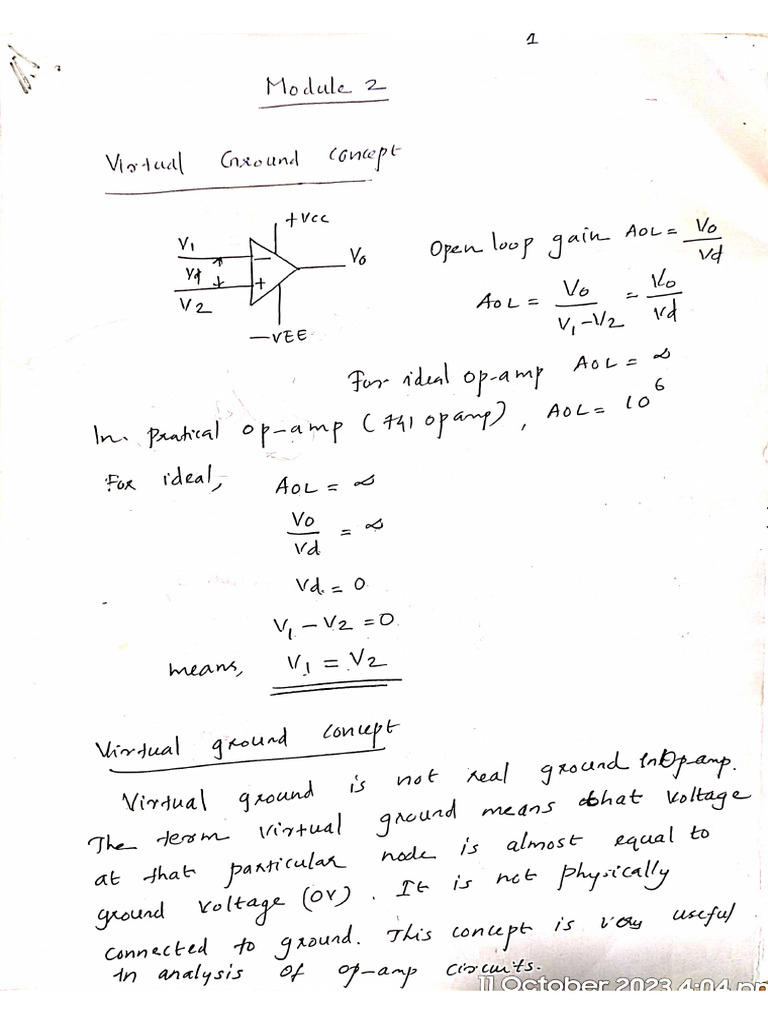 1
Module 2
Virtual Ground concept
+Vcc
V1
Vd
V2
− +
Vo
−VEE
Open loop gain AOL = Vo/Vd
AOL = Vo/(V1−V2) = Vo/Vd
For ideal op-amp AOL = ∞
In pratical op-amp (741 opamp), AOL = 10^6
For ideal, AOL = ∞
Vo/Vd = ∞
Vd = 0
V1 − V2 = 0
means, V1 = V2
Virtual ground concept
Virtual ground is not real ground in Op-amp.
The term virtual ground means that voltage
at that particular node is almost equal to
ground voltage (0V). It is not physically
connected to ground. This concept is very useful
in analysis of op-amp circuits.
11 October 2023 4:04 pm